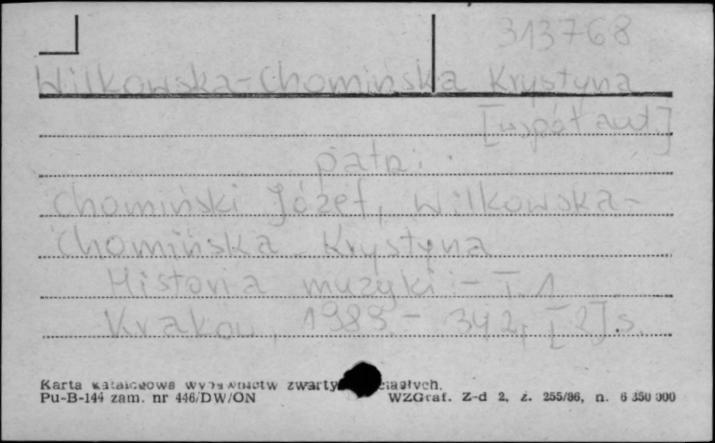 313768
Wilkowska-Chomińska Krystyna
[współaut.]
patrz:
Chomiński Józef, Wilkowska-
Chomińska Krystyna
Historia muzyki. - T. 1
Kraków, 1989. - 342, [2] s.
Karta katalogowa wydawnictw
Pu-B-144 zam. nr 446/DW/ON WZGraf. Z-d 2, ż. 255/86, n. 6 350 000